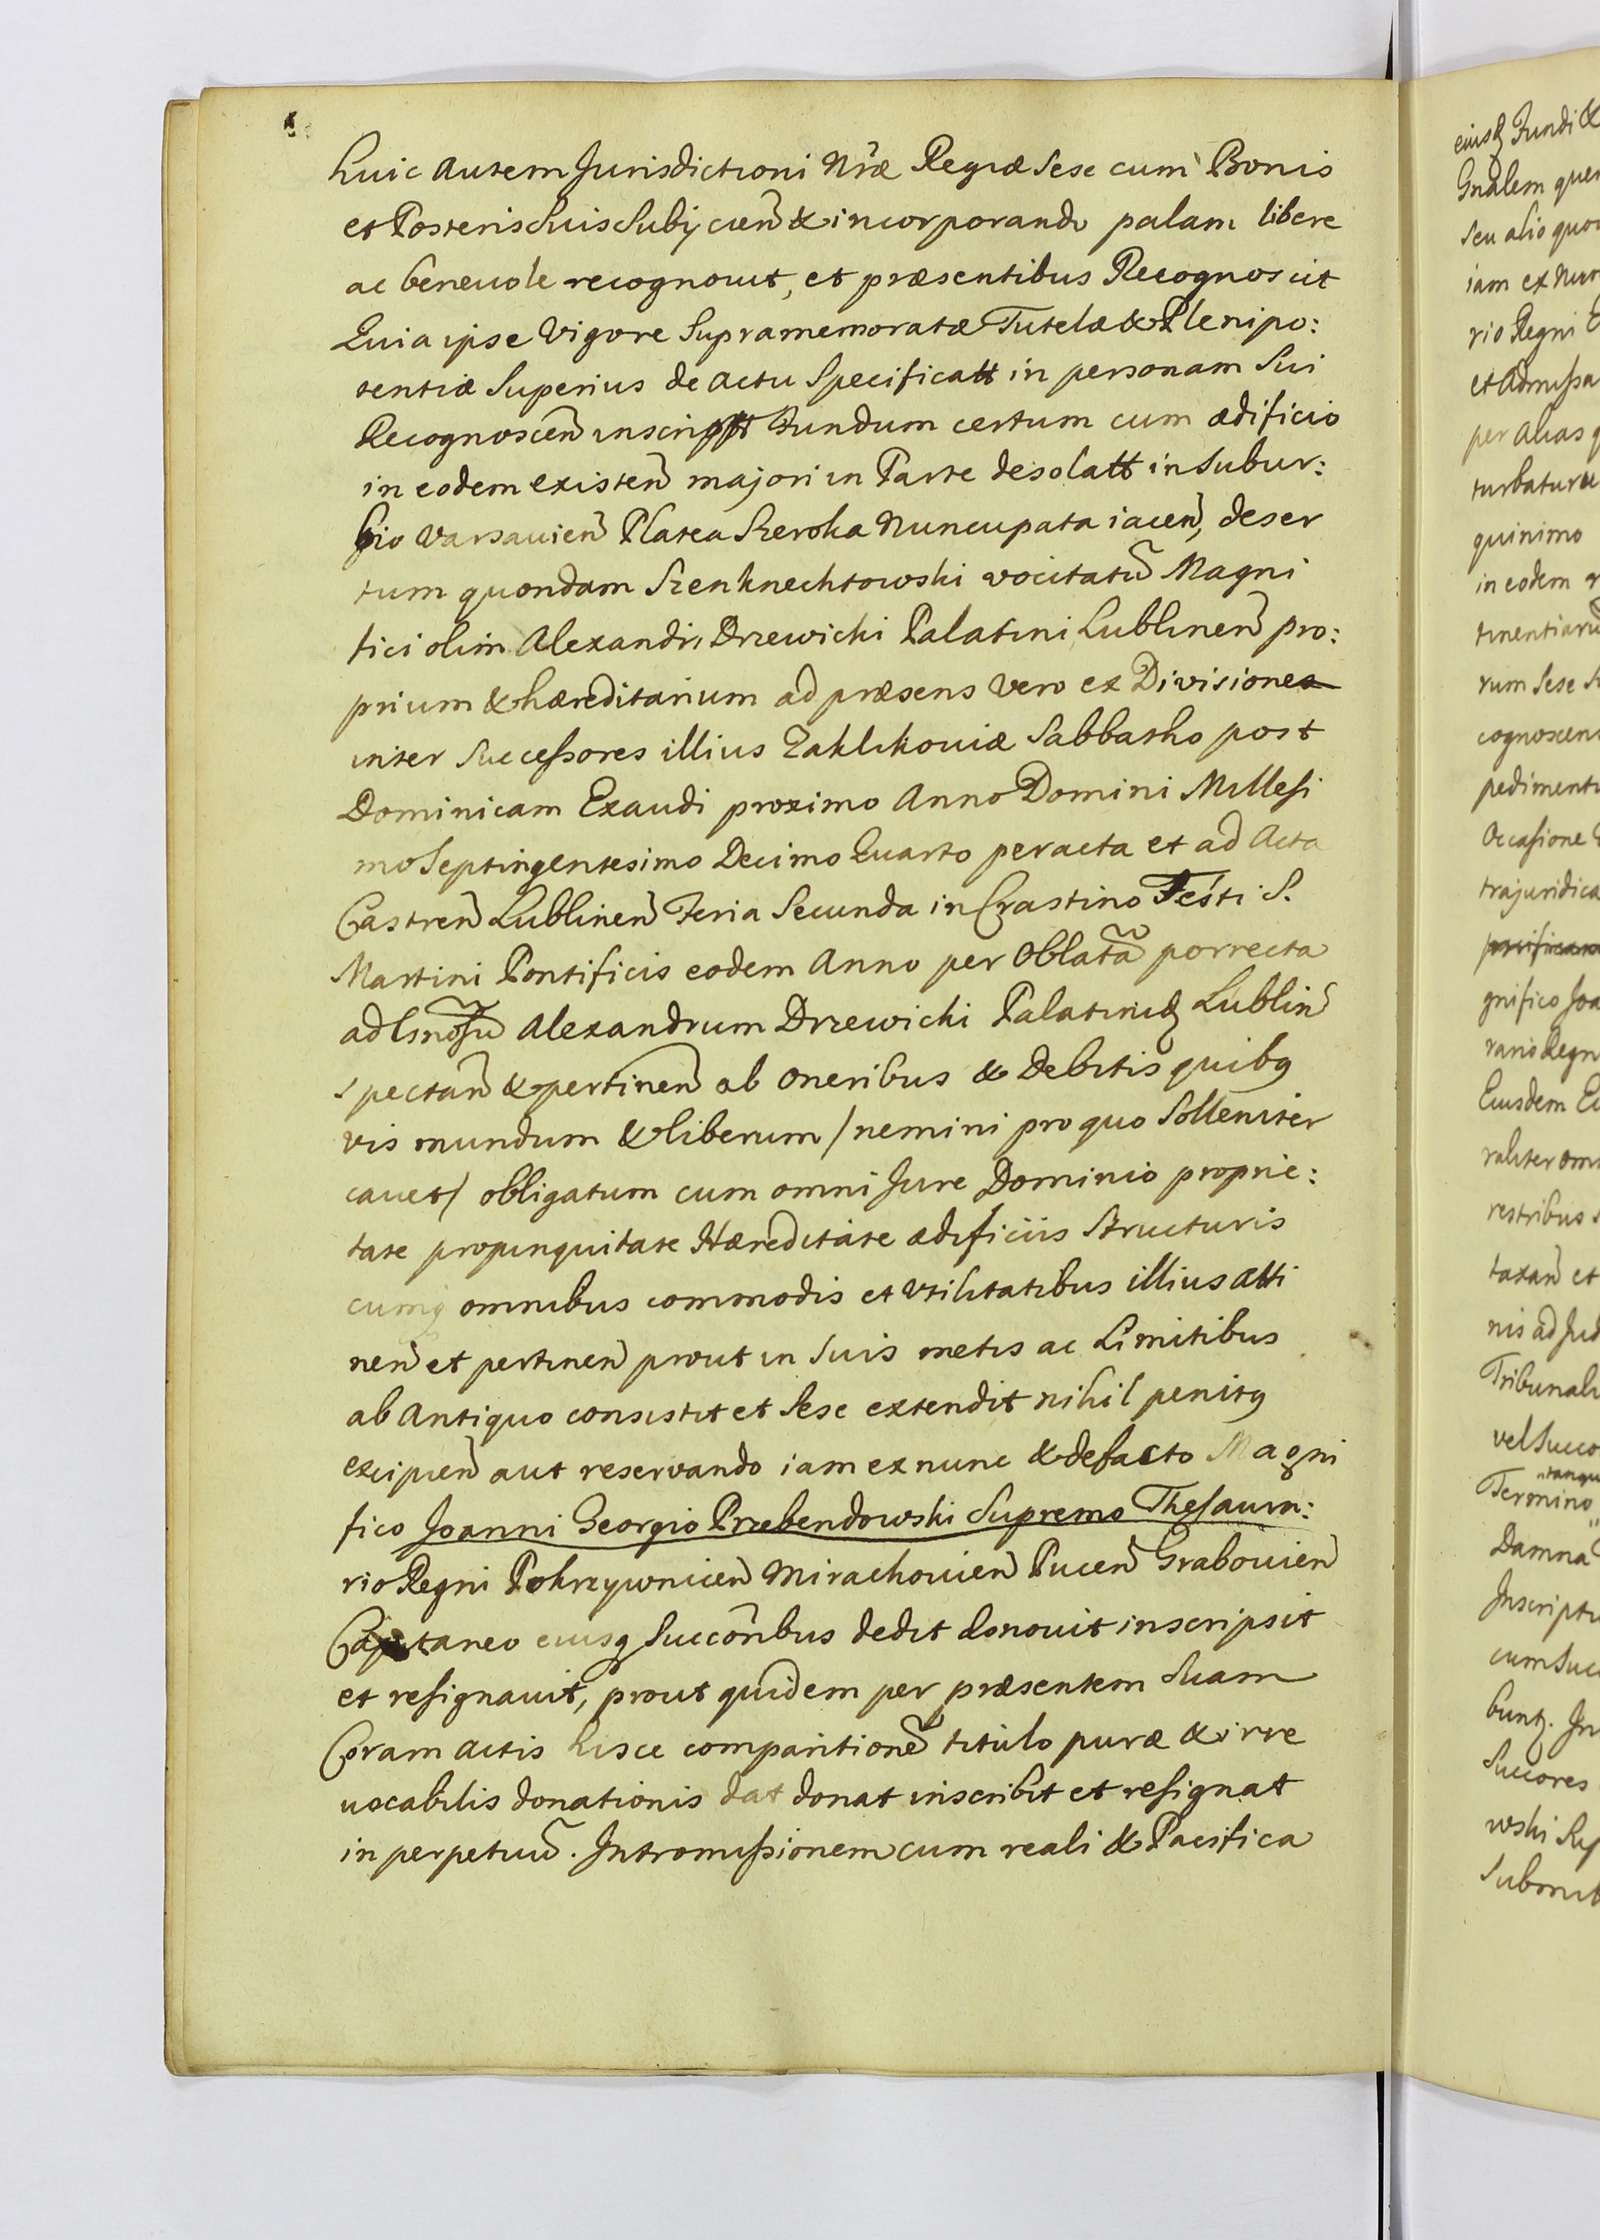 huic autem Jurisdictioni Nr̃æ Regiæ Sese cum Bonis
et Posteris Suis Subijcien̄ & incorporando palam libere
ac beneuole recognouit, et præsentibus Recognoscit
Quia ipse Vigore Supramemoratæ Tutelæ & Plenipo:
tentiæ Superius de actu Specificatt in personam Sui
Recognoscen̄ inscriptt Fundum certum cum ædificio
in eodem existen̄ majori in Parte desolatt in Subur:
bio Varsauien̄ Platea Szeroka Nuncupata iacen̄, deser
tum quondam Szenknechtowski vocitatū Magni
fici olim Alexandri Drzewicki Palatini Lublinen̄ pro:
prium & hæreditarium ad præsens Vero ex Divisione
inter Succeſsores illius Zaklikouiæ Sabbatho post
Dominicam Exaudi proximo Anno Domini Milleſi
mo Septingentesimo Decimo Quarto peracta et ad Acta
Castren̄ Lublinen̄ Feria Secunda in Crastino Festi S.
Martini Pontificis eodem Anno per Oblatā porrecta
ad Gnosū Alexandrum Drzewicki Palatinidȩ Lublin̄
Spectan̄ & pertinen̄ ab oneribus & Debitis quibꝯ
vis mundum & liberum / nemini pro quo Solleniter
cauet / obligatum cum omni Jure Dominio proprie:
tate propinquitate Hæreditate ædificiis Structuris
cumqꝫ omnibus commodis et Vtilitatibus illius atti
nen̄ et pertinen̄ prout in Suis metis ac Limitibus
ab Antiquo consistit et Sese extendit nihil penitꝯ
excipien̄ aut reservando iam ex nunc & defacto Magni
fico Joanni Georgio Przebendowski Supremo Theſaura:
rio Regni Pokrzywnicen̄ Mirachouien̄ Pucen̄ Grabouien̄
Capitaneo eiusqꝫ Succōribus dedit donouit inscripsit
et reſignauit, prout quidem per præsentem Suam
Coram actis hisce comparitionē titulo puræ & irre
uocabilis donationis dat donat inscribit et reſignat
in perpetuū. Intromiſsionem cum reali & Pacifica
eiusqꝫ Fundi &
Gnālem
Seu alio
iam ex
rio Regni
et Admiſsa
per alias
quinimo
in eodem
rum Sese
Occaſione
trajuridica
gnifico Joa
rario Regn
Eiusdem
raliter
restribus
taxan̄ et
nis ad Jud
vel Succo
Termino
Damna
cum Suc
Succores
wski
Submit